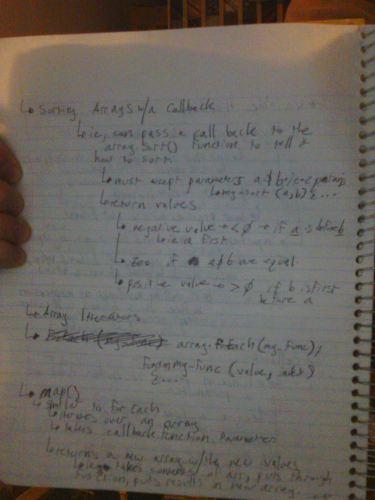 ↳ Sorting Arrays w/a Callback
↳ ie, can pass a call back to the
array.sort() function to tell it
how to sort
↳ must accept parameters a & b
↳ mysort (a,b) {...
↳ return values
↳ negative value → < Ø → if a is before b
↳ ie a first
↳ zero if a & b are equal
↳ positive value → > Ø if b is first
before a
↳ Array Iterators
↳ array.forEach(my_Func),
my-func (value, index)
{....
↳ map()
↳ similar to forEach
↳ iterates over an array
↳ takes callback function parameter
↳ returns a new array w/the new values
↳ takes of arr, puts through
function, puts results in new array